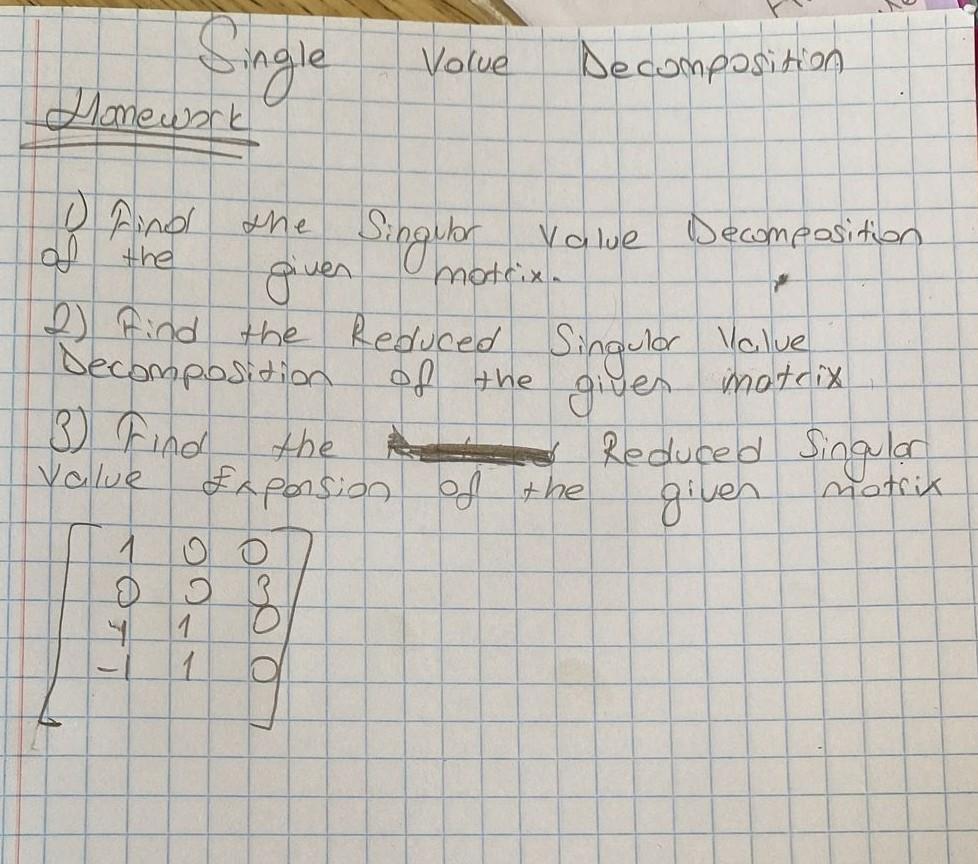 Single Value Decomposition
Homework
1) Find the Singular Value Decomposition
of the given matrix.
2) Find the Reduced Singular Value
Decomposition of the given matrix
3) Find the Reduced Singular
Value Expansion of the given matrix
1 0 0
0 0 3
1 0
-1 1 0